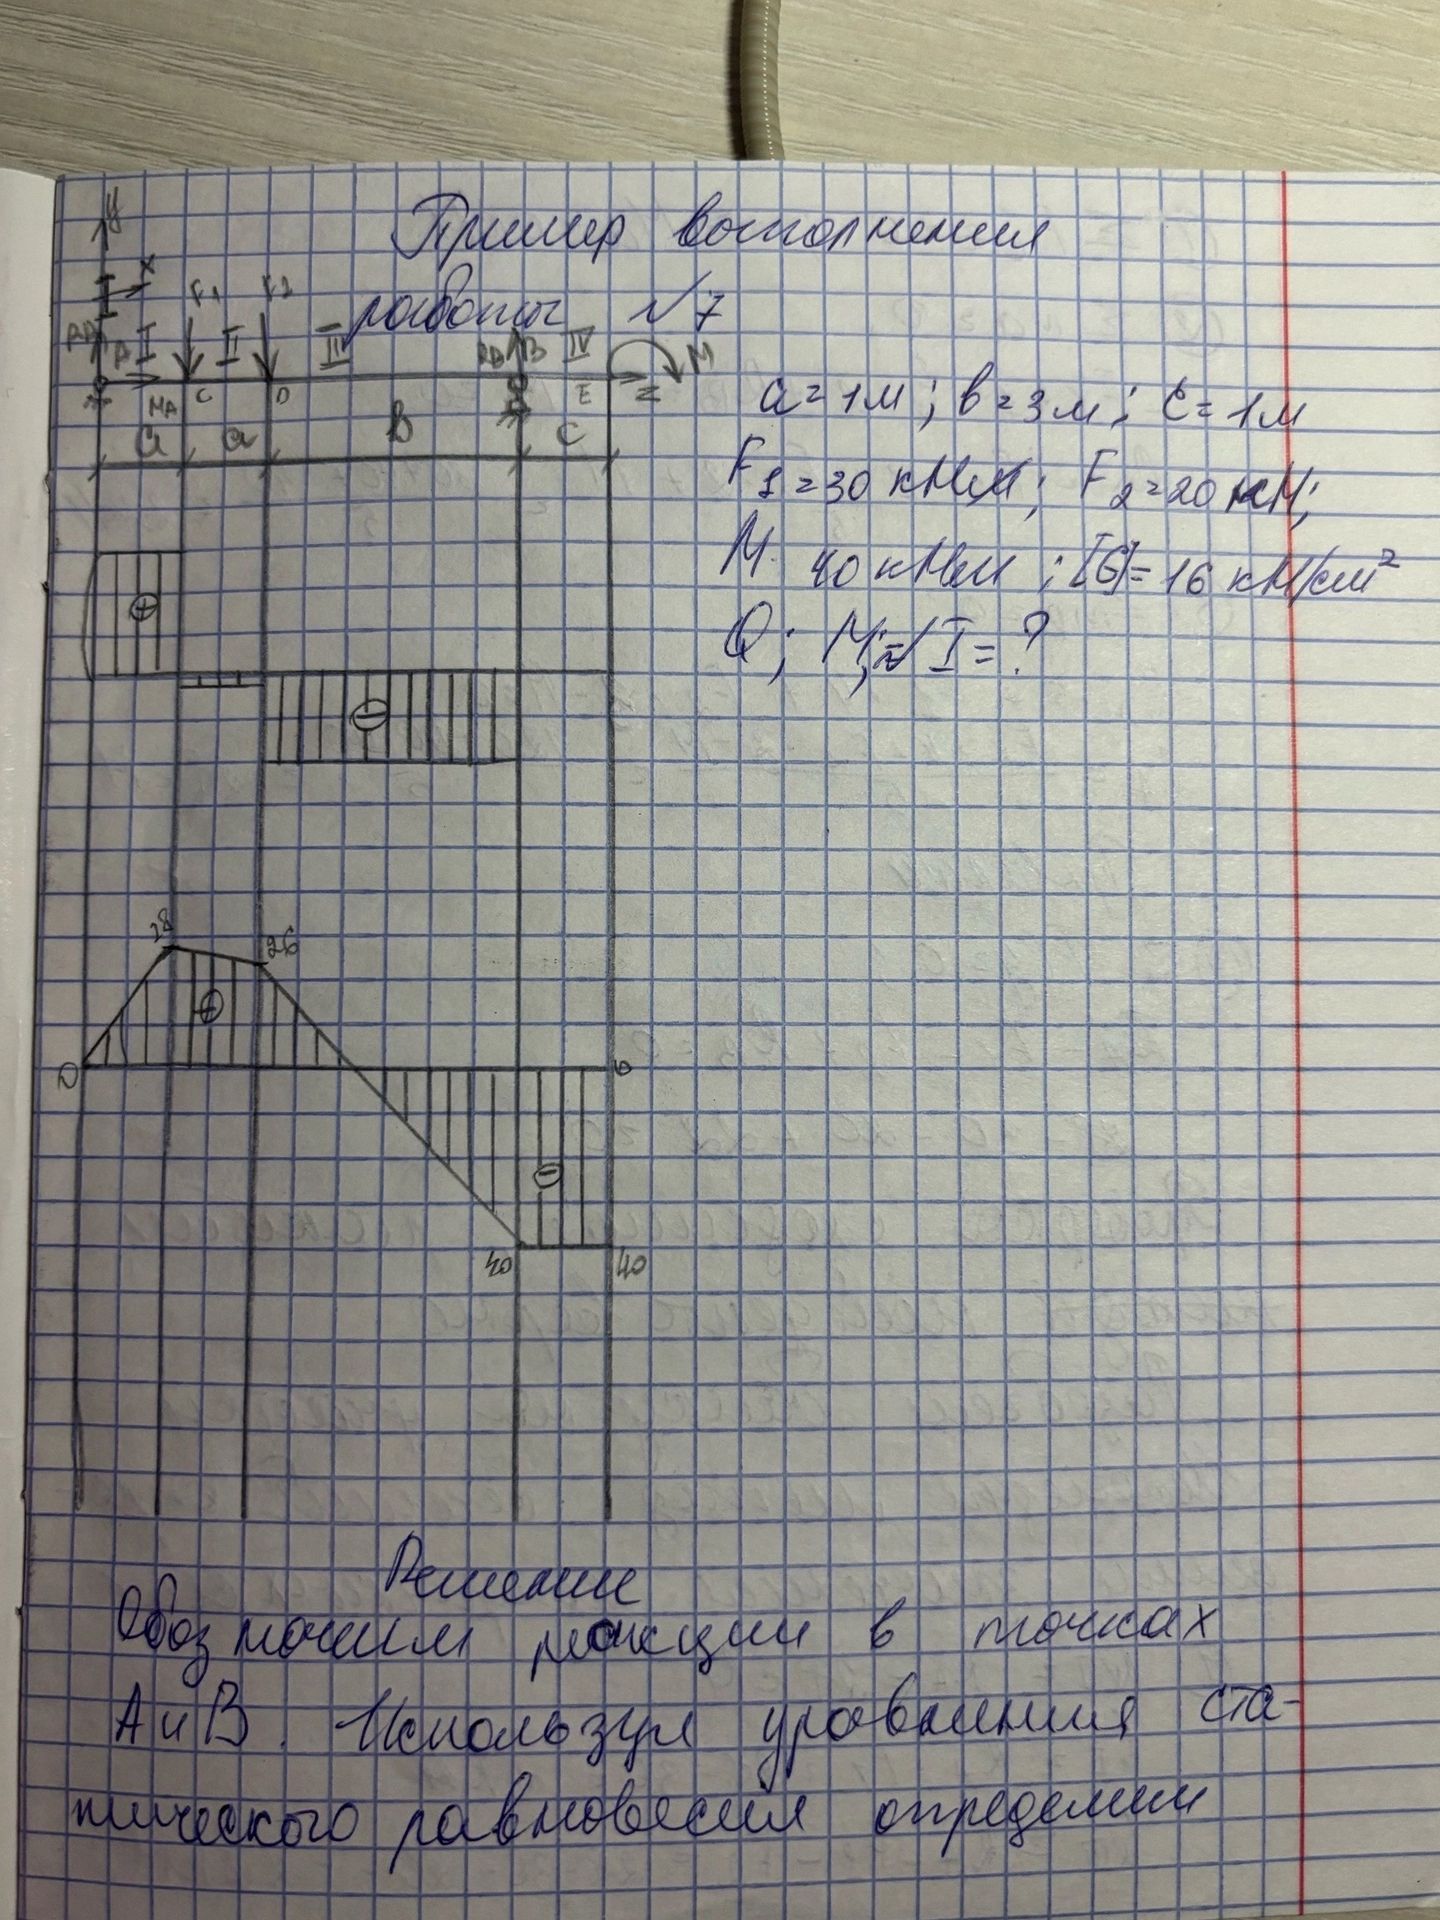 Пример выполнения
работы №7
y
x
F1 F2
RA I II III RB B IV M
MA C D E z
a a B c
a=1м; в=3м; c=1м
F1=30 кНм; F2=20 кН;
M 40 кНм; [б]=16 кН/см²
Q; M; №I=?
+
−
28 26
+
0 0
−
40 40
Решение
Обозначим реакции в точках
А и В. Используя уравнения ста-
тического равновесия определим